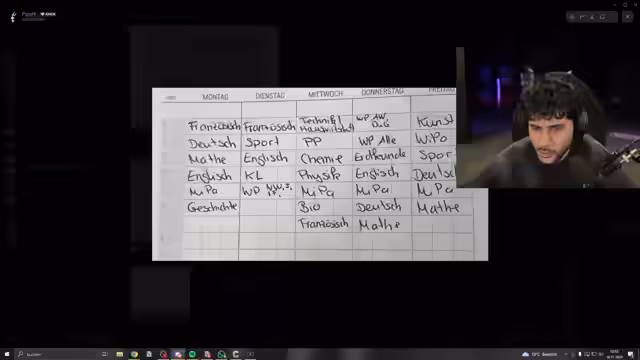 MONTAG DIENSTAG MITTWOCH DONNERSTAG FREITAG
Französisch Französisch Technik/ Kunst
Deutsch Sport PP WP Alle WiPo
Mathe Englisch Chemie Erdkunde Sport
Englisch KL Physik Englisch Deutsch
MiPa WP MiPa MiPa MiPa
Geschichte Bio Deutsch Mathe
Französisch Mathe